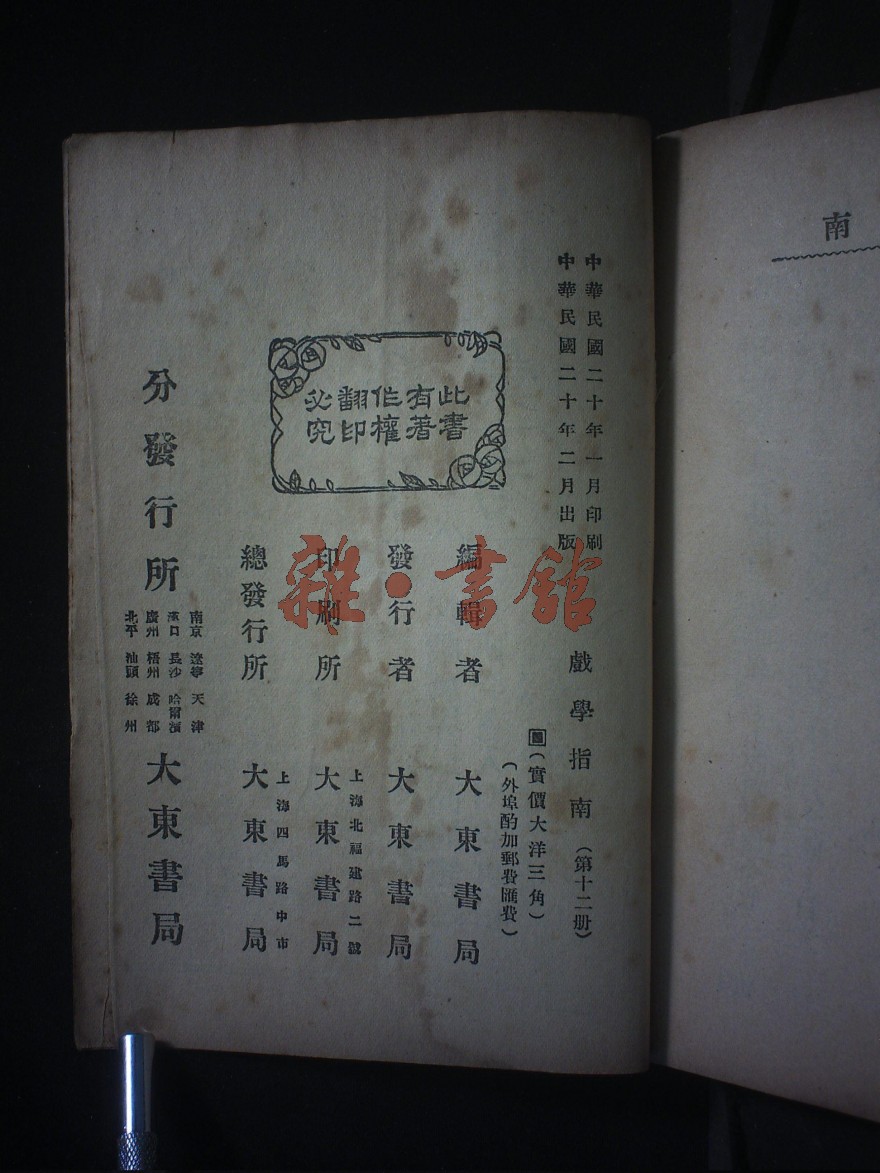 南
中華民國二十年一月印刷
中華民國二十年二月出版
戲學指南(第十二册)
(實價大洋三角)
(外埠酌加郵費匯費)
此書
有著
作權
翻印
必究
編輯者 大東書局
發行者 大東書局
上海北福建路二號
印刷所 大東書局
上海四馬路中市
總發行所 大東書局
分發行所
南京 遼寧 天津
漢口 長沙 哈爾濱
廣州 梧州 成都
北平 汕頭 徐州
大東書局
雜·書館